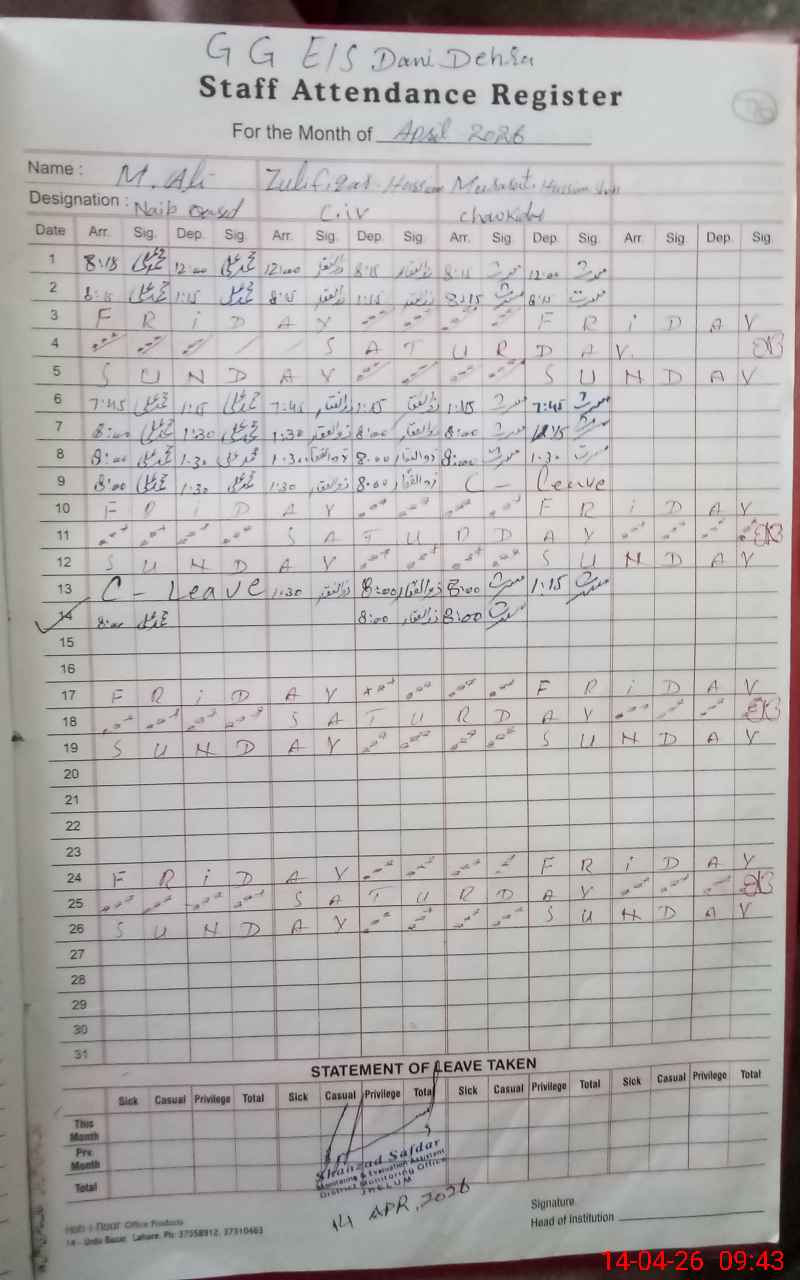 G G E/S Dani Dehra
Staff Attendance Register
For the Month of April 2026
Name : M. Ali Zulifiqar Hussain Hussain
Designation : Naib Civ Chowkidar
Date Arr. Sig. Dep. Sig. Arr. Sig. Dep. Sig. Arr. Sig. Dep. Sig. Arr. Sig. Dep. Sig.
1 8:15 محمد علی 12:00 محمد علی 12:00 ذوالفقار 8:15 ذوالفقار 8:15 12:00
2 8:15 محمد علی 1:15 محمد علی 8:15 ذوالفقار 1:15 ذوالفقار 8:15 8:15
3 F R i D A Y F R i D A Y
4 S A T U R D A Y
5 S U N D A Y S U N D A Y
6 7:45 محمد علی 1:15 محمد علی 7:45 ذوالفقار 1:15 ذوالفقار 1:15 7:45
7 8:00 محمد علی 1:30 محمد علی 1:30 ذوالفقار 8:00 ذوالفقار 8:00
8 8:00 محمد علی 1:30 محمد علی 1:30 ذوالفقار 8:00 ذوالفقار 8:00 1:30
9 8:00 محمد علی 1:30 محمد علی 1:30 ذوالفقار 8:00 ذوالفقار C - Leave
10 F R i D A Y F R i D A Y
11 S A T U R D A Y
12 S U N D A Y S U N D A Y
13 C - Leave 1:30 ذوالفقار 8:00 ذوالفقار 8:00 1:15
14 8:00 محمد علی 8:00 ذوالفقار 8:00
15
16
17 F R i D A Y F R i D A Y
18 S A T U R D A Y
19 S U N D A Y S U N D A Y
20
21
22
23
24 F R i D A Y F R i D A Y
25 S A T U R D A Y
26 S U N D A Y S U N D A Y
27
28
29
30
31
STATEMENT OF LEAVE TAKEN
Sick Casual Privilege Total Sick Casual Privilege Total Sick Casual Privilege Total Sick Casual Privilege Total
This Month
Pre. Month
Total
Shahzad Safdar
Monitoring & Evaluation Assistant
District Monitoring Office
JHELUM
14 APR, 2026
Signature
Head of Institution
Office Products
14 - Urdu Bazar Lahore. Ph: 37358912, 37310463
14-04-26 09:43